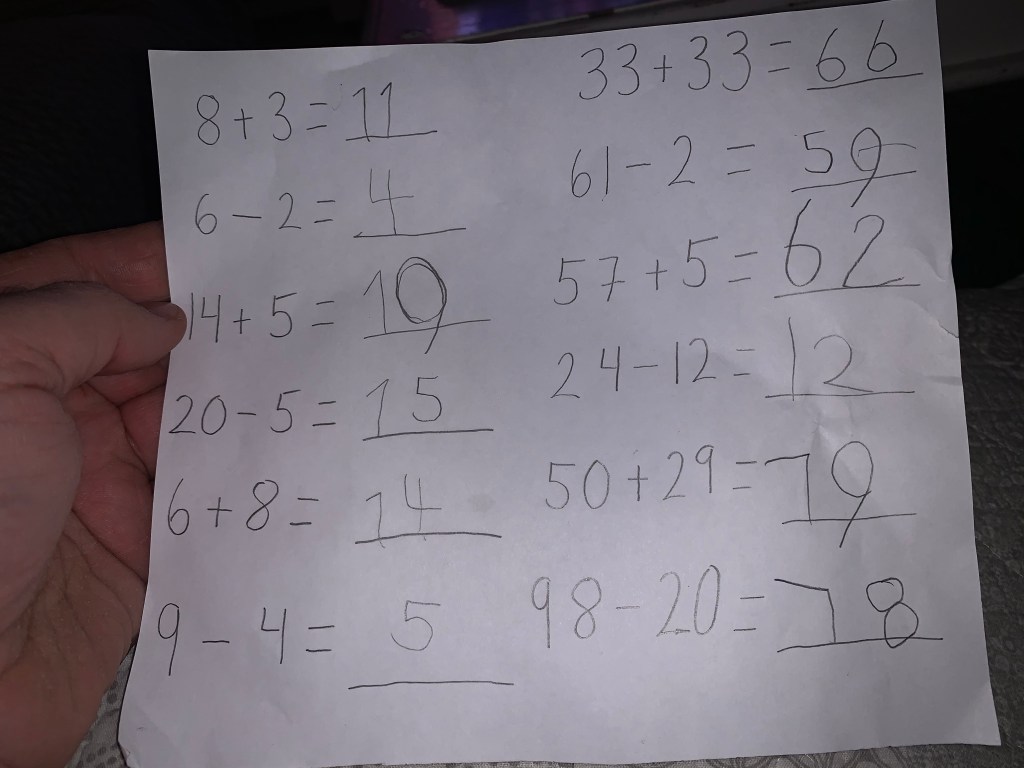 8 + 3 = 11
6 - 2 = 4
14 + 5 = 19
20 - 5 = 15
6 + 8 = 14
9 - 4 = 5
33 + 33 = 66
61 - 2 = 59
57 + 5 = 62
24 - 12 = 12
50 + 29 = 79
98 - 20 = 78